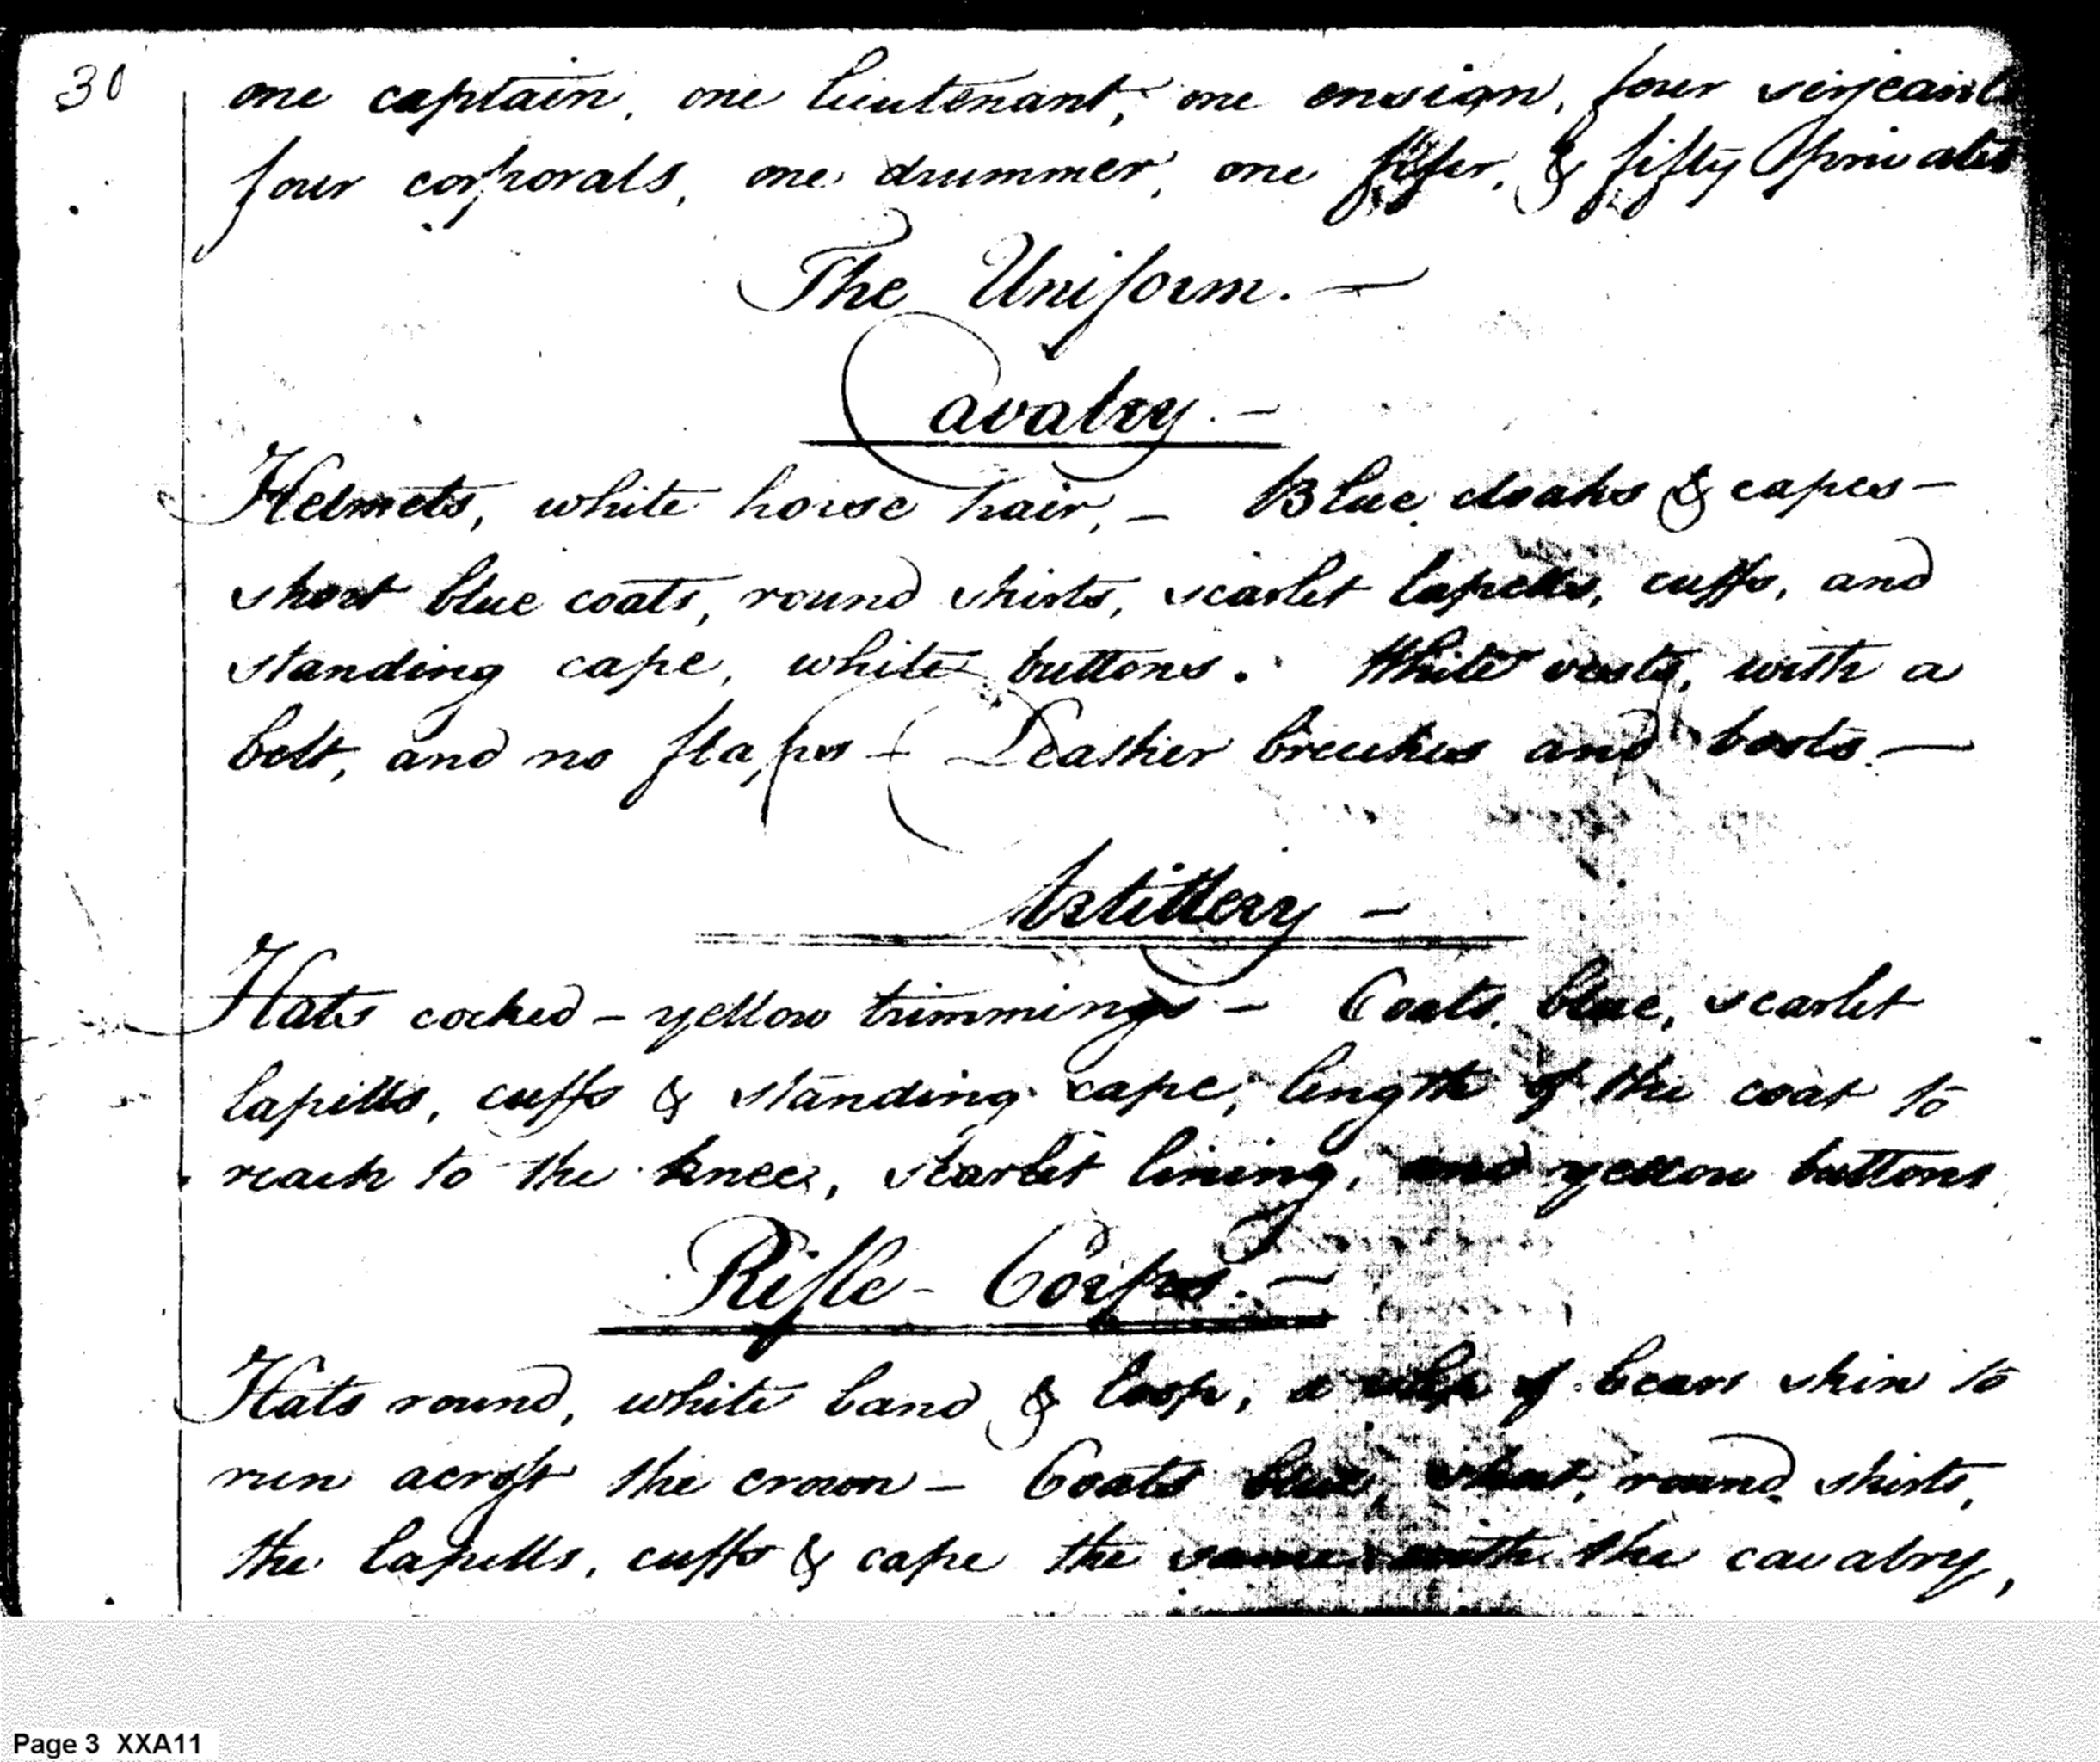 30
one captain, one lieutenant, one ensign, four serjeants
four corporals, one drummer, one fifer, & fifty privates
The Uniform. —
Cavalry. —
Helmets, white horse hair, — Blue cloaks & capes —
short blue coats, round skirts, scarlet lapells, cuffs, and
standing cape, white buttons. White vests, with a
belt, and no flaps — Leather breeches and boots. —
Artillery —
Hats cocked — yellow trimmings — Coats, blue, scarlet
lapells, cuffs & standing cape, length of the coat to
reach to the knee, scarlet lining, and yellow buttons
Rifle - Corps. —
Hats round, white band & loop, a strip of bears skin to
run across the crown — Coats blue, short, round skirts,
the lapells, cuffs & cape the same with the cavalry,
Page 3 XXA11